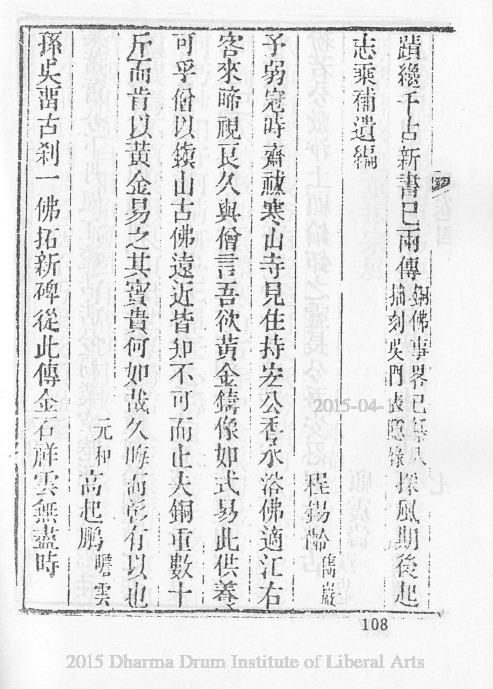 蹟繼千古新書已兩傳 銅佛事畧已纂入
捕刻吳門表隱錄 採風期後起
志乘補遺編
程錫齡 儁巖
予弱冠時齋祓寒山寺見住持宏公香水浴佛適江右
客來睇視良久與僧言吾欲黃金鑄像如式易此供養
可乎僧以鎮山古佛遠近皆知不可而止夫銅重數十
斤而肯以黃金易之其寶貴何如哉久晦而彰有以也
元和 高起鵬 瞻雲
孫吳畱古刹一佛拓新碑從此傳金石祥雲無盡時
2015-04-1
108
2015 Dharma Drum Institute of Liberal Arts